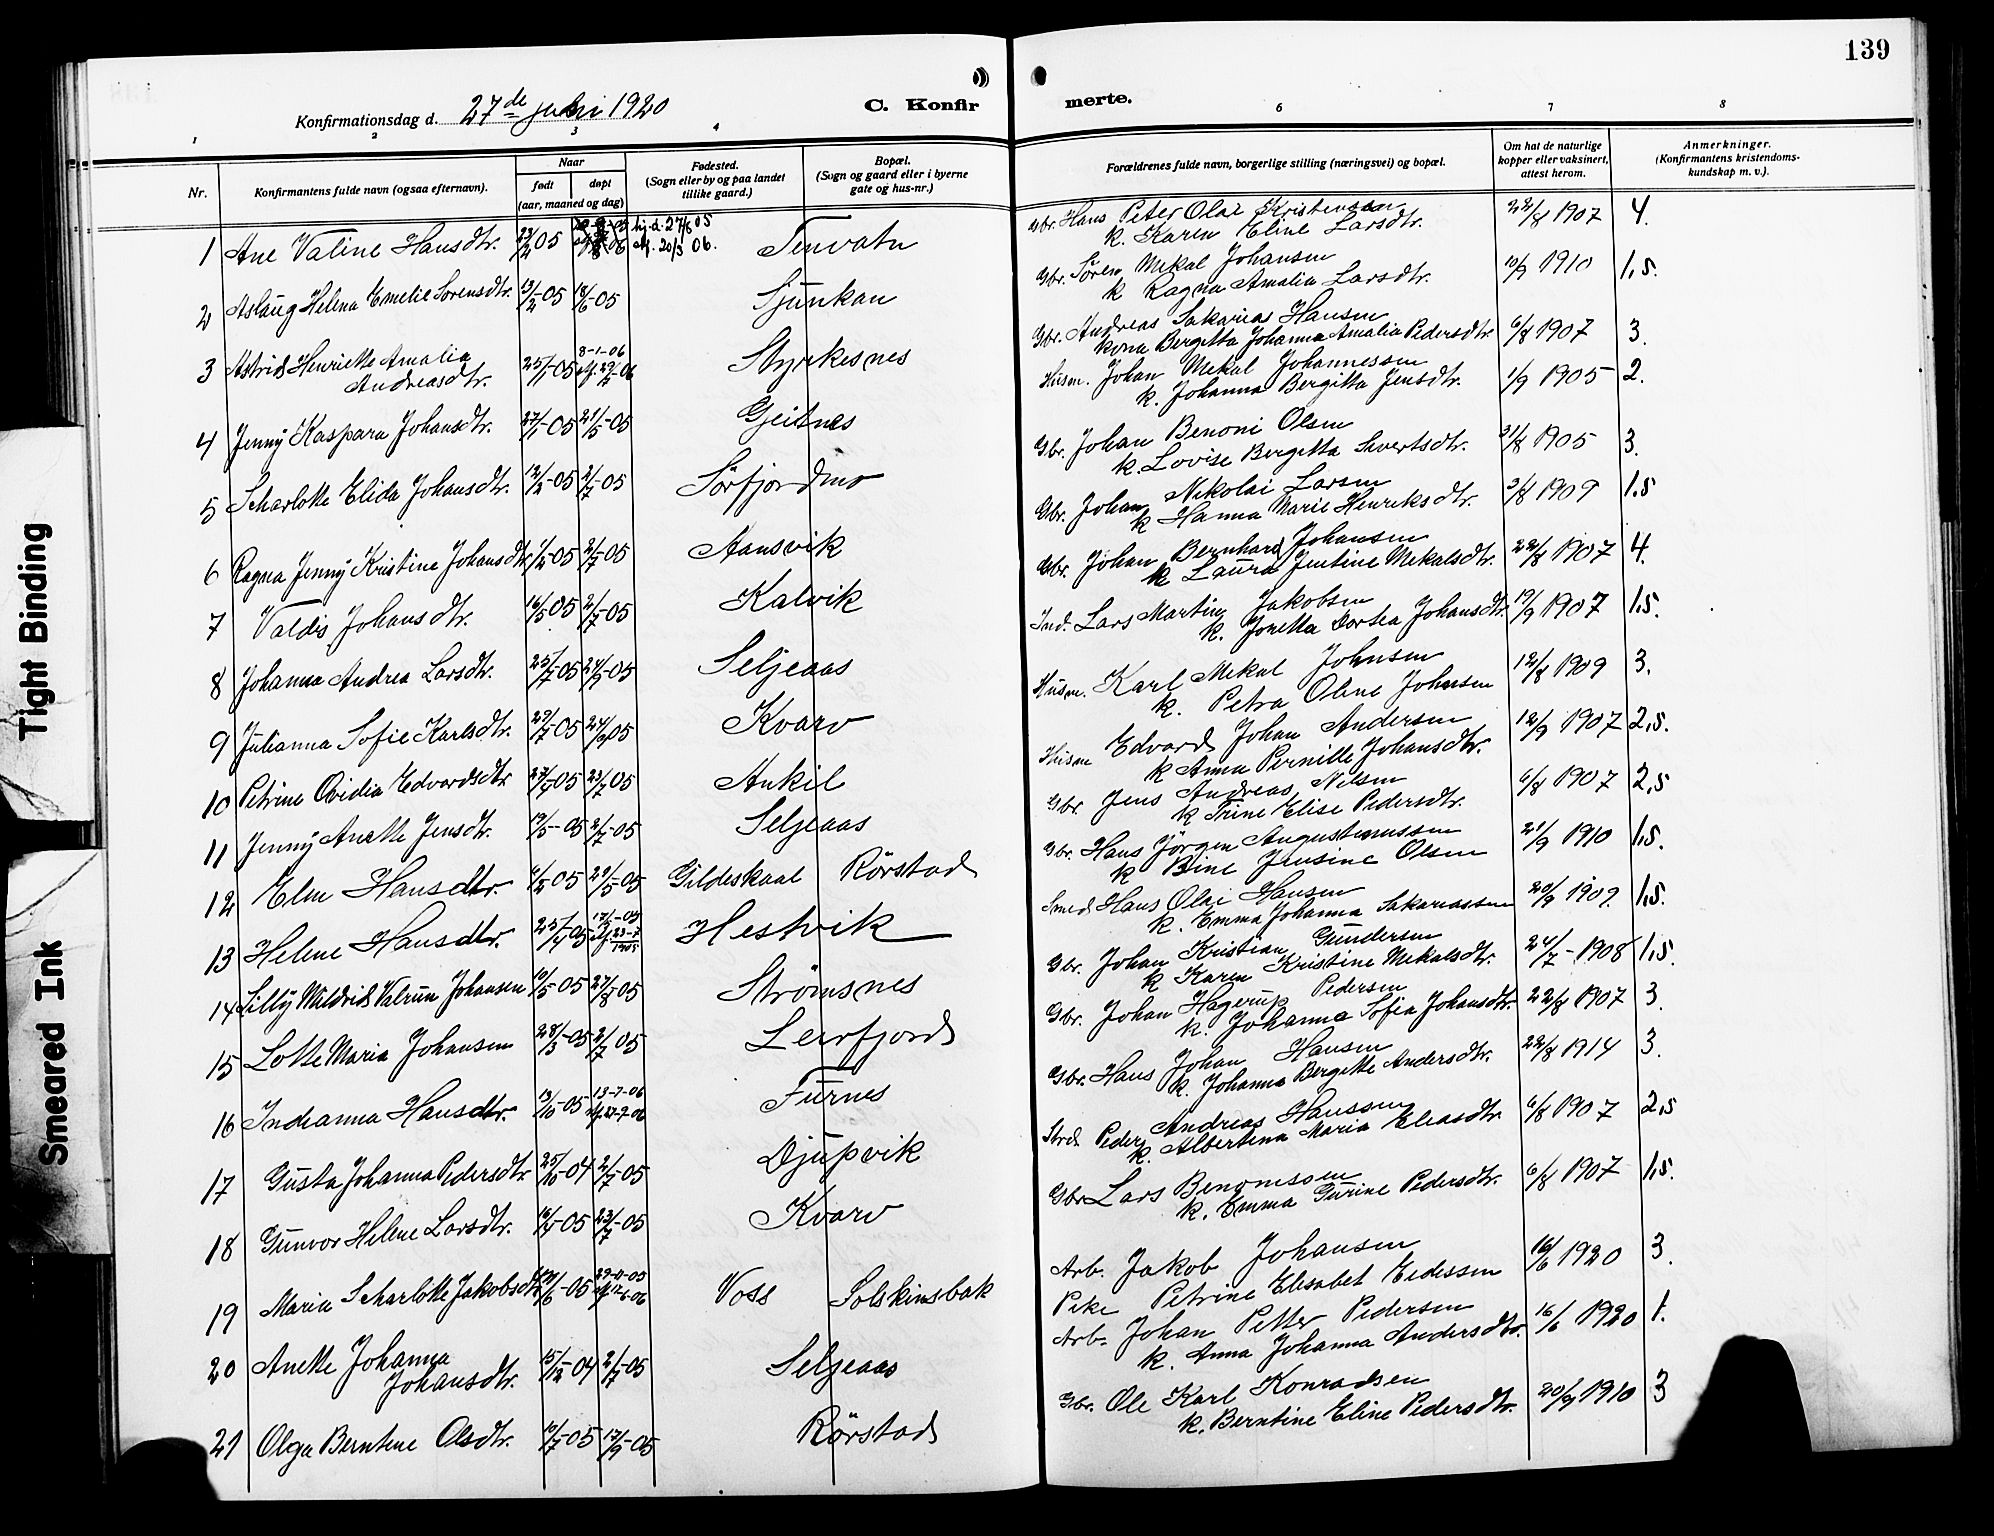 139
Konfirmationsdag d. 27de juni 1920
C. Konfirmerte.
1 2 3 4 6 7 8
Nr.
Konfirmantens fulde navn (ogsaa efternavn).
Naar
født døpt
(aar, maaned og dag)
Fødested.
(Sogn eller by og paa landet
tillike gaard.)
Bopæl.
(Sogn og gaard eller i byerne
gate og hus-nr.)
Forældrenes fulde navn, borgerlige stilling (næringsvei) og bopæl.
Om hat de naturlige
kopper eller vaksinert,
attest herom.
Anmerkninger.
(Konfirmantens kristendoms-
kundskap m. v.).
1 Ane Valine Hansdtr. 23/4 05 hj.d. 27/6 05 Tenvatn
20/3 06.
Gbr. Hans Peter Olai Kristensen 22/8 1907 4.
k. Karen Eline Larsdtr.
2 Aslaug Helena Emelie Sørensdtr. 13/2-05 18/6-05 Sjunkan
Gbr. Søren Mekal Johansen 10/9 1910 1,5.
k Ragna Amalia Larsdtr.
3 Astrid Henriette Amalia 25/11-05 8-1-06 Styrkesnes
Andreasdtr.
Gbr. Andreas Sakarias Hansen 6/8 1907 3.
kona Bergitta Johanna Amalia Pedersdtr
4 Jenny Kaspara Johansdtr. 27/1-05 21/5-05 Geitnes
Husm. Johan Mekal Johannessen 1/9 1905 2.
k. Johanna Bergitta Jensdtr.
5 Scharlotte Elida Johansdtr. 12/2-05 2/7-05 Sørfjordmo
Gbr. Johan Benoni Olsen 31/8 1905 3.
k. Lovise Bergitta Sivertsdtr.
6 Ragna Jenny Kristine Johansdtr 1/2-05 2/7-05 Aansvik
Gbr. Johan Nikolai Larsen 3/8 1909 1.5
k Hanna Marie Henriksdtr.
7 Valdis Johansdtr. 16/5-05 2/7-05 Kalvik
Gbr. Johan Bernhard Johansen 22/8 1907 4.
k Laura Jentine Mekalsdtr.
8 Johanna Andrea Larsdtr. 25/7-05 24/9-05 Seljeaas
Ind. Lars Martin Jakobsen 19/9 1907 1.5.
k. Joretta Dortea Johansdtr.
9 Julianna Sofie Karlsdtr. 23/7-05 24/9 05 Kvarv
Husm. Karl Mekal Johnsen 12/8 1909 3.
k. Petra Oline Johnsen
10 Petrine Ovidia Edvardsdtr 27/4-05 23/7 05 Ankil
Husm Edvard Johan Andersen 12/9 1907 2,5.
k Anna Pernille Johansdtr.
11 Jenny Anette Jensdtr. 19/5-05 2/7-05 Seljeaas
Gbr. Jens Andreas Nilsen 6/8 1907 2,5
k Trine Elise Pedersdtr.
12 Elen Hansdtr. 6/2-05 21/5-05 Gildeskaal Rørstad
Gbr. Hans Jørgen Augustinussen 21/9 1910 1,5.
k Bine Jensine Olsen
13 Helene Hansdtr. 25/4-05 Hestvik
Smed Hans Olai Hansen 20/9 1909. 1,5.
k. Emma Johanna Sakariassen
14 Lilly Mildrid Valrun Johansen 10/5-05 27/8-05 Strømsnes
Gbr. Johan Kristian Gundersen 24/7-1908 1,5.
k Karen Kristine Mekalsdtr.
15 Lotte Maria Johansen 28/3-05 2/7 05 Leirfjord
Gbr. Johan Hagerup Pedersen 22/8 1907 3.
k. Johanna Sofia Johansdtr.
16 Indianna Hansdtr. 13/10-05 Furnes
Gbr. Hans Johan Hansen 22/8 1914 3.
k. Johanna Bergitte Andersdtr.
17 Gusta Johanna Pedersdtr 25/10-04 2/7-05 Djupvik
Peder Andreas Hanssen 6/8 1907 2,5
k. Albertina Maria Eliasdtr.
18 Gunvor Helene Larsdtr. 16/4-05 23/7-05 Kvarv
Gbr Lars Benonissen 6/8 1907 1,5.
k. Emma Gurine Pedersdtr.
19 Maria Scharlotte Jakobsdtr Voss Solskinsbak
Arb. Jakob Johansen 16/6 1920 3.
Pike Petrine Elisabet Eidissen
20 Anette Johanna 15/12-04 2/7-05 Seljeaas
Johansdtr.
Arb. Johan Petter Pedersen 16/6 1920 1.
k. Anna Johanna Andersdtr.
21 Olga Berntine Olsdtr. 10/7-05 17/9-05 Rørstad
Gbr. Ole Karl Konradsen 20/9 1910 3
k. Berntine Eline Pedersdtr.
Tight Binding
Smeared Ink